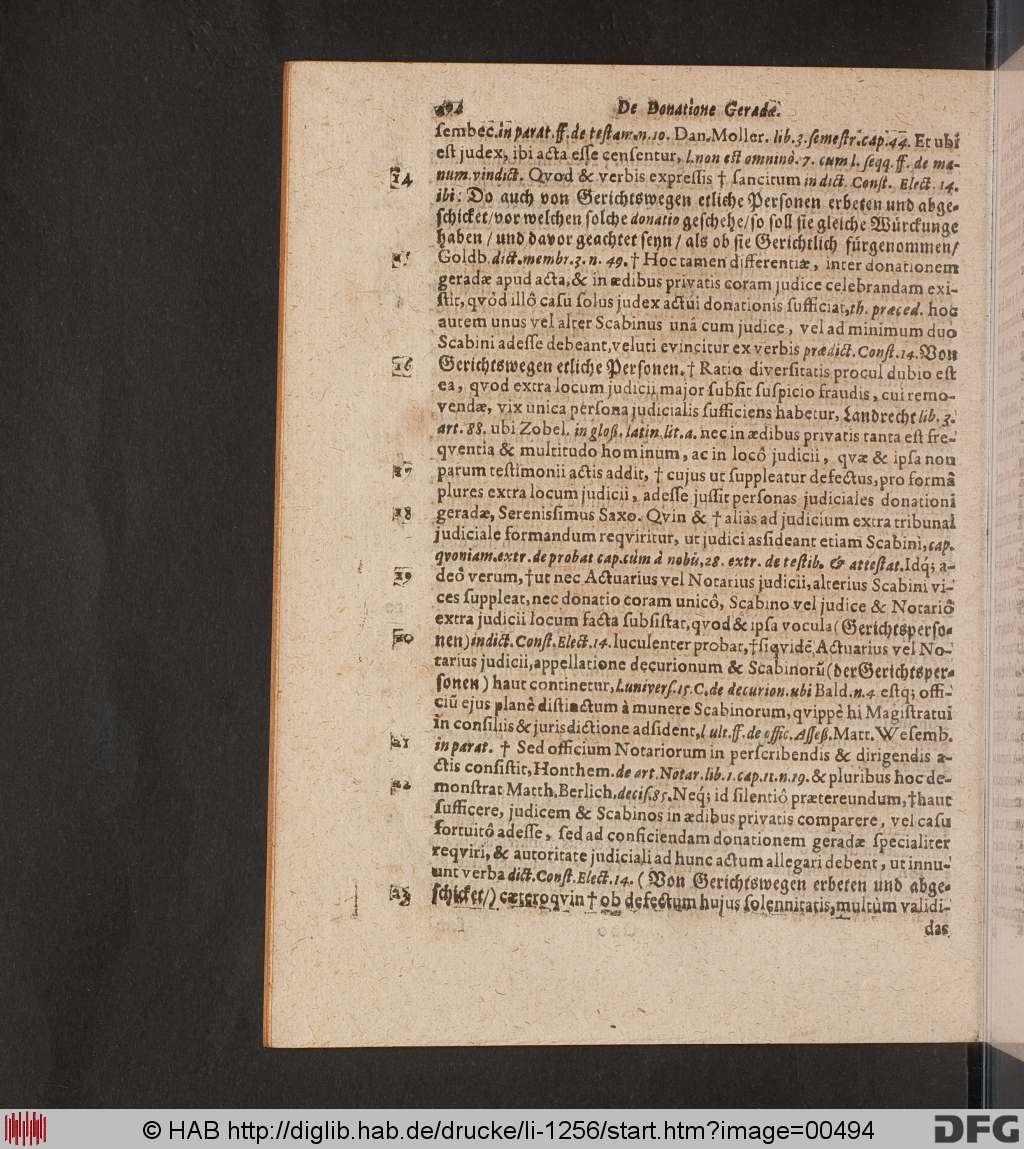 492 De Donatione Geradæ.
sembec. in parat. ff. de testam. n. 10. Dan. Moller. lib. 3. semestr. cap. 44. Et ubi
est judex, ibi acta esse censentur, l. non est omninò. 7. cum l. seqq. ff. de ma-
14 num. vindict. Qvod & verbis expressis † sancitum in dict. Const. Elect. 14.
ibi: Do auch von Gerichtswegen etliche Personen erbeten und abge-
schicket/ vor welchen solche donatio geschehe/ so soll sie gleiche Würckunge
haben / und davor geachtet seyn / als ob sie Gerichtlich fürgenommen/
15 Goldb. dict. membr. 3. n. 49. † Hoc tamen differentiæ, inter donationem
geradæ apud acta, & in ædibus privatis coram judice celebrandam exi-
stit, qvòd illô casu solus judex actui donationis sufficiat, th. præced. hoc
autem unus vel alter Scabinus unà cum judice, vel ad minimum duo
Scabini adesse debeant, veluti evincitur ex verbis prædict. Const. 14. Von
16 Gerichtswegen etliche Personen. † Ratio diversitatis procul dubio est
ea, qvod extra locum judicii major subsit suspicio fraudis, cui remo-
vendæ, vix unica persona judicialis sufficiens habetur, Landrecht lib. 3.
art. 88. ubi Zobel. in gloß. latin. lit. a. nec in ædibus privatis tanta est fre-
qventia & multitudo hominum, ac in locô judicii, qvæ & ipsa non
17 parum testimonii actis addit, † cujus ut suppleatur defectus, pro formâ
plures extra locum judicii, adesse jussit personas judiciales donationi
18 geradæ, Serenissimus Saxo. Qvin & † aliàs ad judicium extra tribunal
judiciale formandum reqviritur, ut judici assideant etiam Scabini, cap.
qvoniam. extr. de probat cap. cùm à nobis, 28. extr. de testib. & attestat. Idq́; a-
19 deô verum, † ut nec Actuarius vel Notarius judicii, alterius Scabini vi-
ces suppleat, nec donatio coram unicô, Scabino vel judice & Notariô
extra judicii locum facta subsistat, qvod & ipsa vocula (Gerichtsperso-
20 nen) in dict. Const. Elect. 14. luculenter probat, † siqvidē Actuarius vel No-
tarius judicii, appellatione decurionum & Scabinorū (der Gerichtsper-
sonen) haut continetur, l. univers. 15. C. de decurion. ubi Bald. n. 4 estq; offi-
ciū ejus planè distinctum à munere Scabinorum, qvippè hi Magistratui
in consiliis & jurisdictione adsident, l ult. ff. de offic. Asseß. Matt. Wesemb.
21 in parat. † Sed officium Notariorum in perscribendis & dirigendis a-
ctis consistit, Honthem. de art. Notar. lib. 1. cap. 11. n. 19. & pluribus hoc de-
22 monstrat Matth. Berlich. decis. 85. Neq́; id silentiô prætereundum, † haut
sufficere, judicem & Scabinos in ædibus privatis comparere, vel casu
fortuitô adesse, sed ad conficiendam donationem geradæ specialiter
reqviri, & autoritate judiciali ad hunc actum allegari debent, ut innu-
unt verba dict. Const. Elect. 14. (Von Gerichtswegen erbeten und abge-
23 schicket/) cæteroqvin † ob defectum hujus solennitatis, multùm validi-
das
© HAB http://diglib.hab.de/drucke/li-1256/start.htm?image=00494
DFG